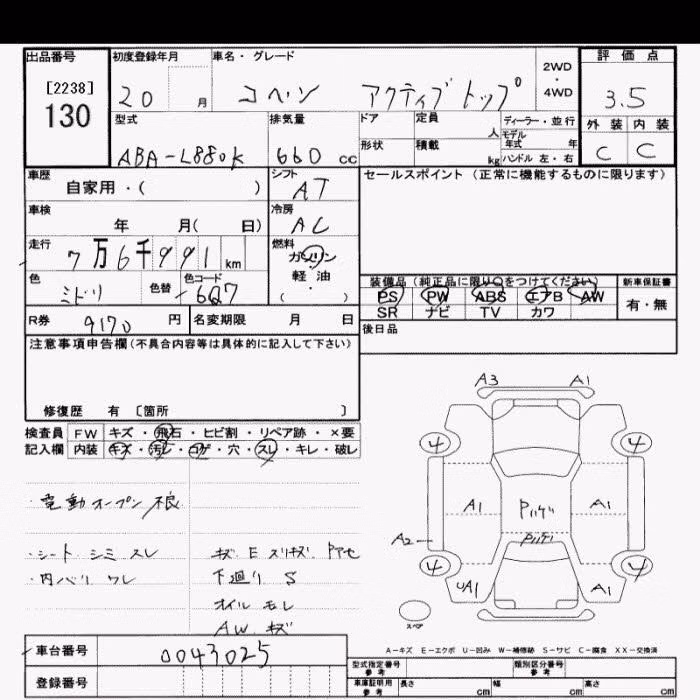 出品番号
[2238]
130
初度登録年月
20 月
車名・グレード
コペン アクティブトップ
2WD
・
4WD
評価点
3.5
外装 内装
C C
型式
ABA-L880K
排気量
660 cc
ドア 定員 人
形状 積載 kg
ディーラー・並行
モデル年式 年
ハンドル 左・右
車歴
自家用・( )
シフト
AT
車検
年 月( 日)
冷房
AC
走行
7万6千991km
燃料
ガソリン
軽油
・
( )
色
ミドリ
色替
色コード
6Q7
R券 9170 円
名変期限 月 日
セールスポイント (正常に機能するものに限ります)
装備品 (純正品に限り○をつけてください)
新車保証書
PS PW ABS エアB AW
SR ナビ TV カワ
有・無
後日品
注意事項申告欄(不具合内容等は具体的に記入して下さい)
修復歴 有 〔箇所 〕
検査員 FW キズ・飛石・ヒビ割・リペア跡・×要
記入欄 内装 キズ・汚レ・コゲ・穴・スレ・キレ・破レ
・電動オープン不良
・シート シミ スレ
・内バリ ワレ
キズ E スリキズ
下廻り S
オイル モレ
AW キズ
A3 A1
4 4
A1 A1
A2
4 4
UA1 A1
スペア
A-キズ E-エクボ U-凹み W-補修跡 S-サビ C-腐食 XX-交換済
車台番号 0043025
登録番号
型式指定番号 参考
類別区分番号 参考
車庫証明用 参考 長さ cm 幅 cm 高さ cm